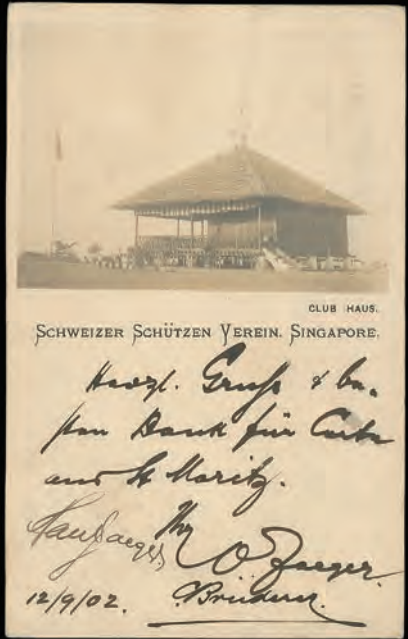 CLUB HAUS.
SCHWEIZER SCHÜTZEN VEREIN. SINGAPORE.
Herzl. Gruss & be-
sten Dank für Carte
aus St Moritz.
Ihr
O Jaeger.
Hans Jaeger.
12/9/02.